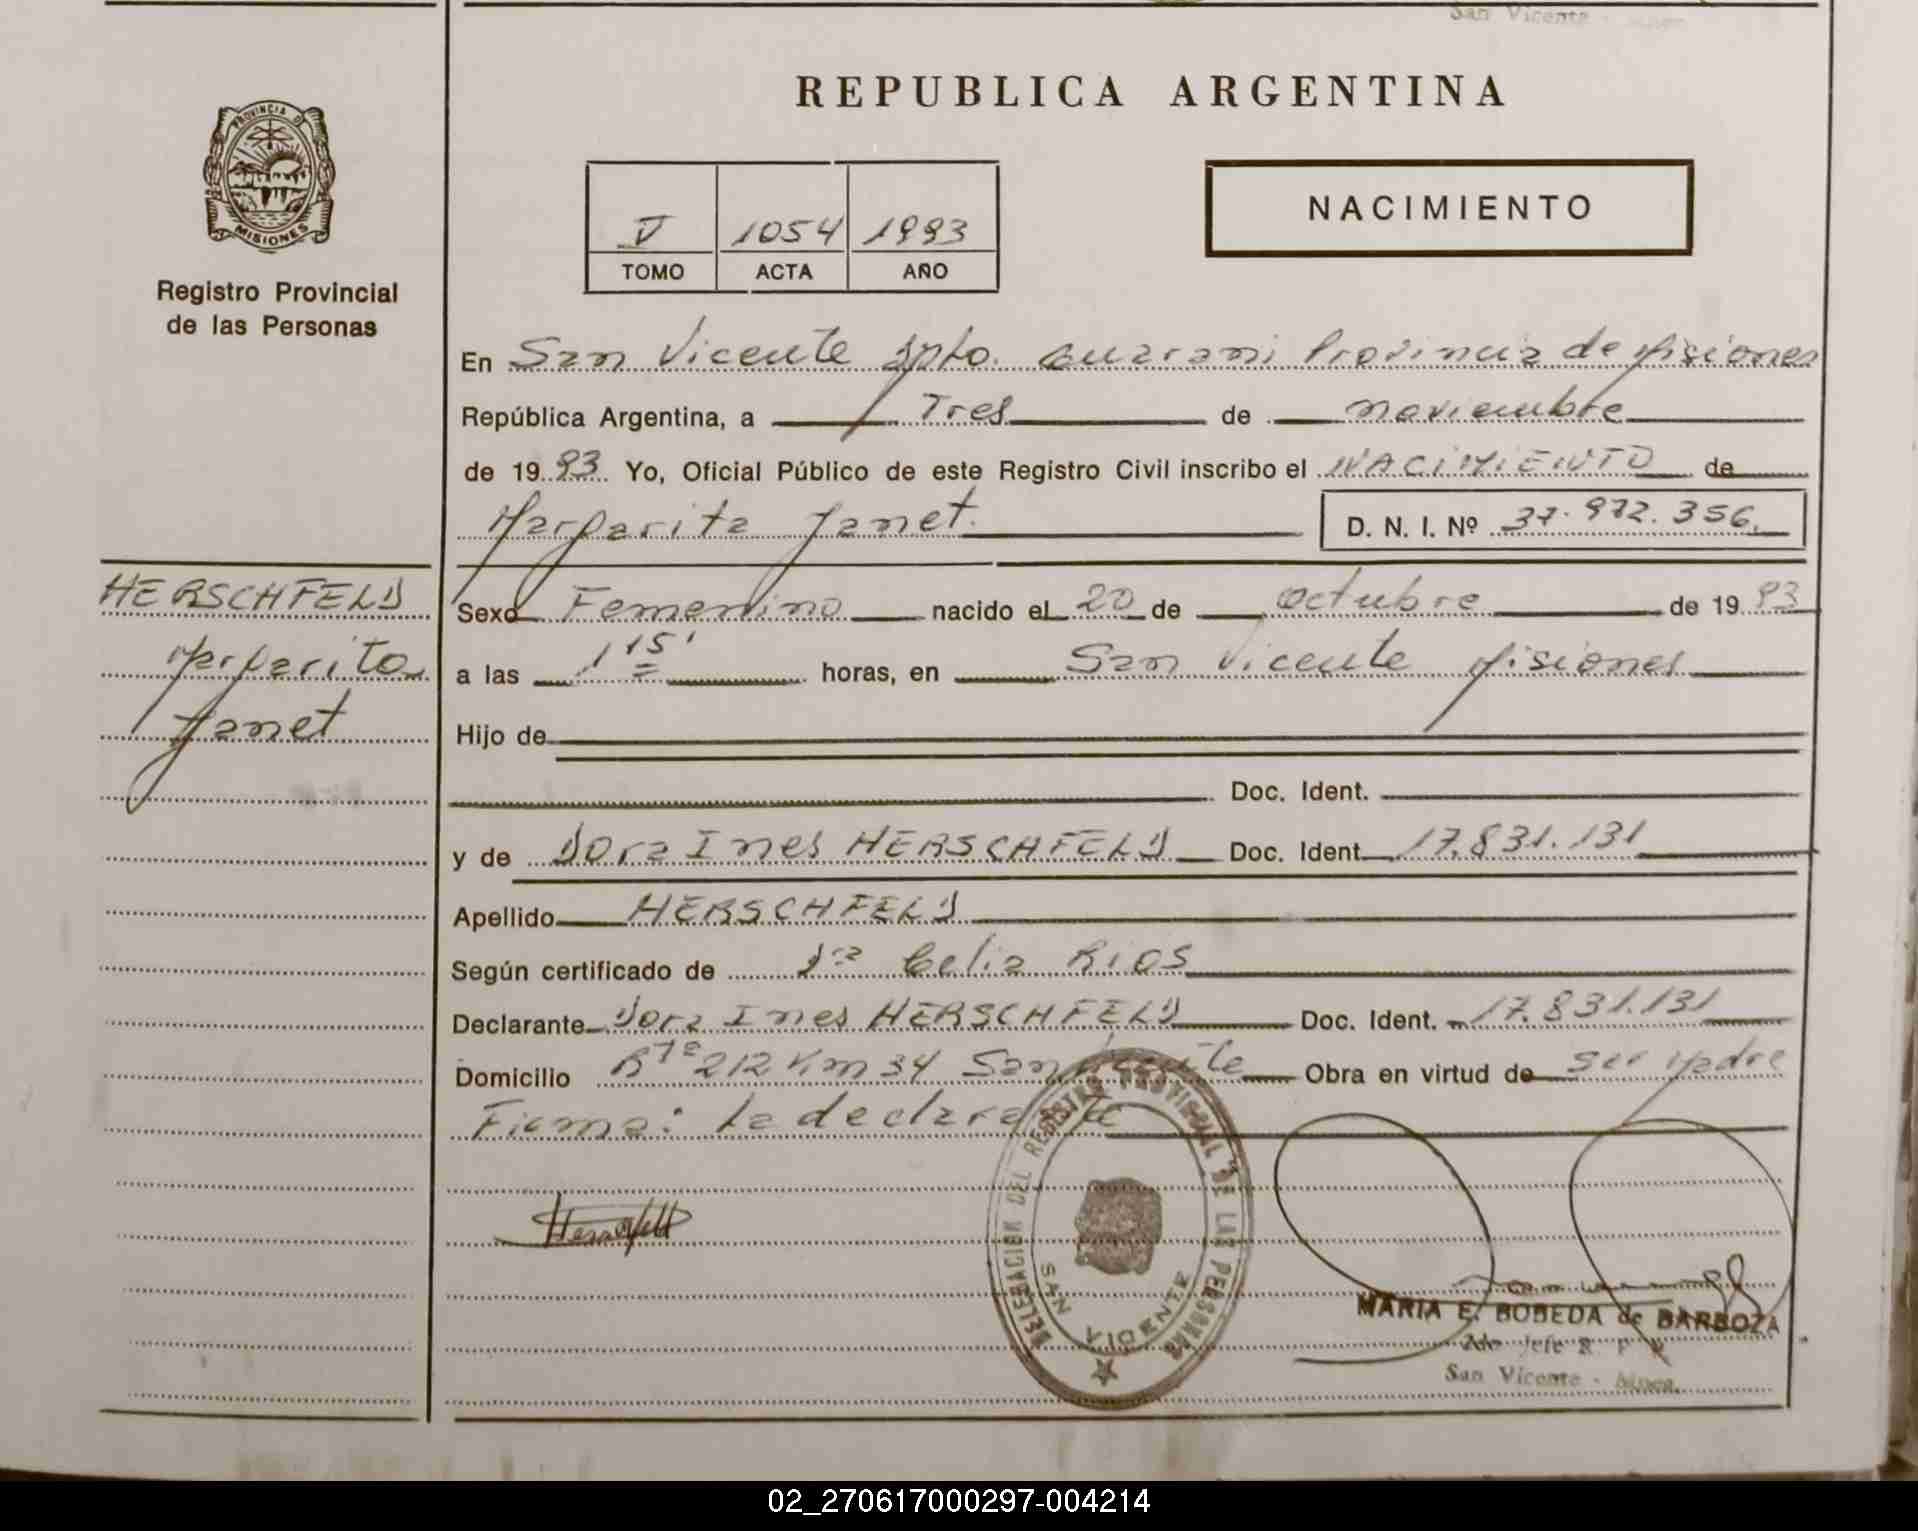 San Vicente -
REPUBLICA ARGENTINA
PROVINCIA D
MISIONES
Registro Provincial
de las Personas
V 1054 1993
TOMO ACTA AÑO
NACIMIENTO
En San Vicente Dpto. Guarani Provincia de Misiones
República Argentina, a Tres de noviembre
de 1993 Yo, Oficial Público de este Registro Civil inscribo el NACIMIENTO de
Margarita Janet. D. N. I. Nº 37.972.356.
HERSCHFELD
Margarita
Janet
Sexo Femenino nacido el 20 de octubre de 1993
a las 1 15' horas, en San Vicente Misiones
Hijo de
Doc. Ident.
y de Dora Ines HERSCHFELD Doc. Ident. 17.831.131
Apellido HERSCHFELD
Según certificado de Dra Celia Rios
Declarante Dora Ines HERSCHFELD Doc. Ident. 17.831.131
Domicilio Rta 212 Km 34 San Vicente Obra en virtud de ser Madre
Firma: La declarante
DELEGACION DEL REGISTRO PROVINCIAL DE LAS PERSONAS
SAN VICENTE
MARIA E. BOBEDA de BARBOZA
Jefe R. P. P.
San Vicente - Mnes.
02_270617000297-004214